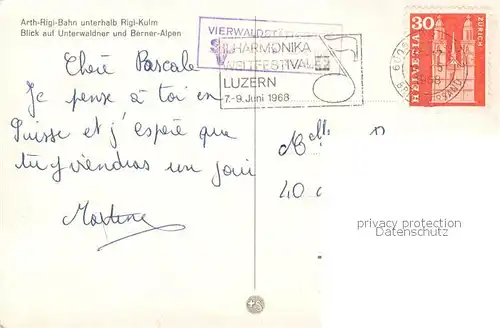 Arth-Rigi-Bahn unterhalb Rigi-Kulm
Blick auf Unterwaldner und Berner-Alpen
VIERWALDST
HARMONIKA
WELTFESTIVAL
LUZERN
7.-9. Juni 1968
30
HELVETIA
ZÜRICH
Chère Pascale
Je pense à toi en
Suisse et j'espère que
tu y viendras un jour
Martine
Melle
40
privacy protection
Datenschutz